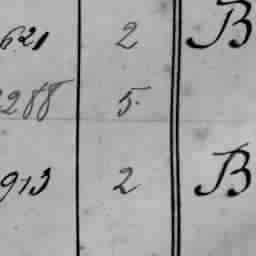 621 2 B
288 5.
913 2 B